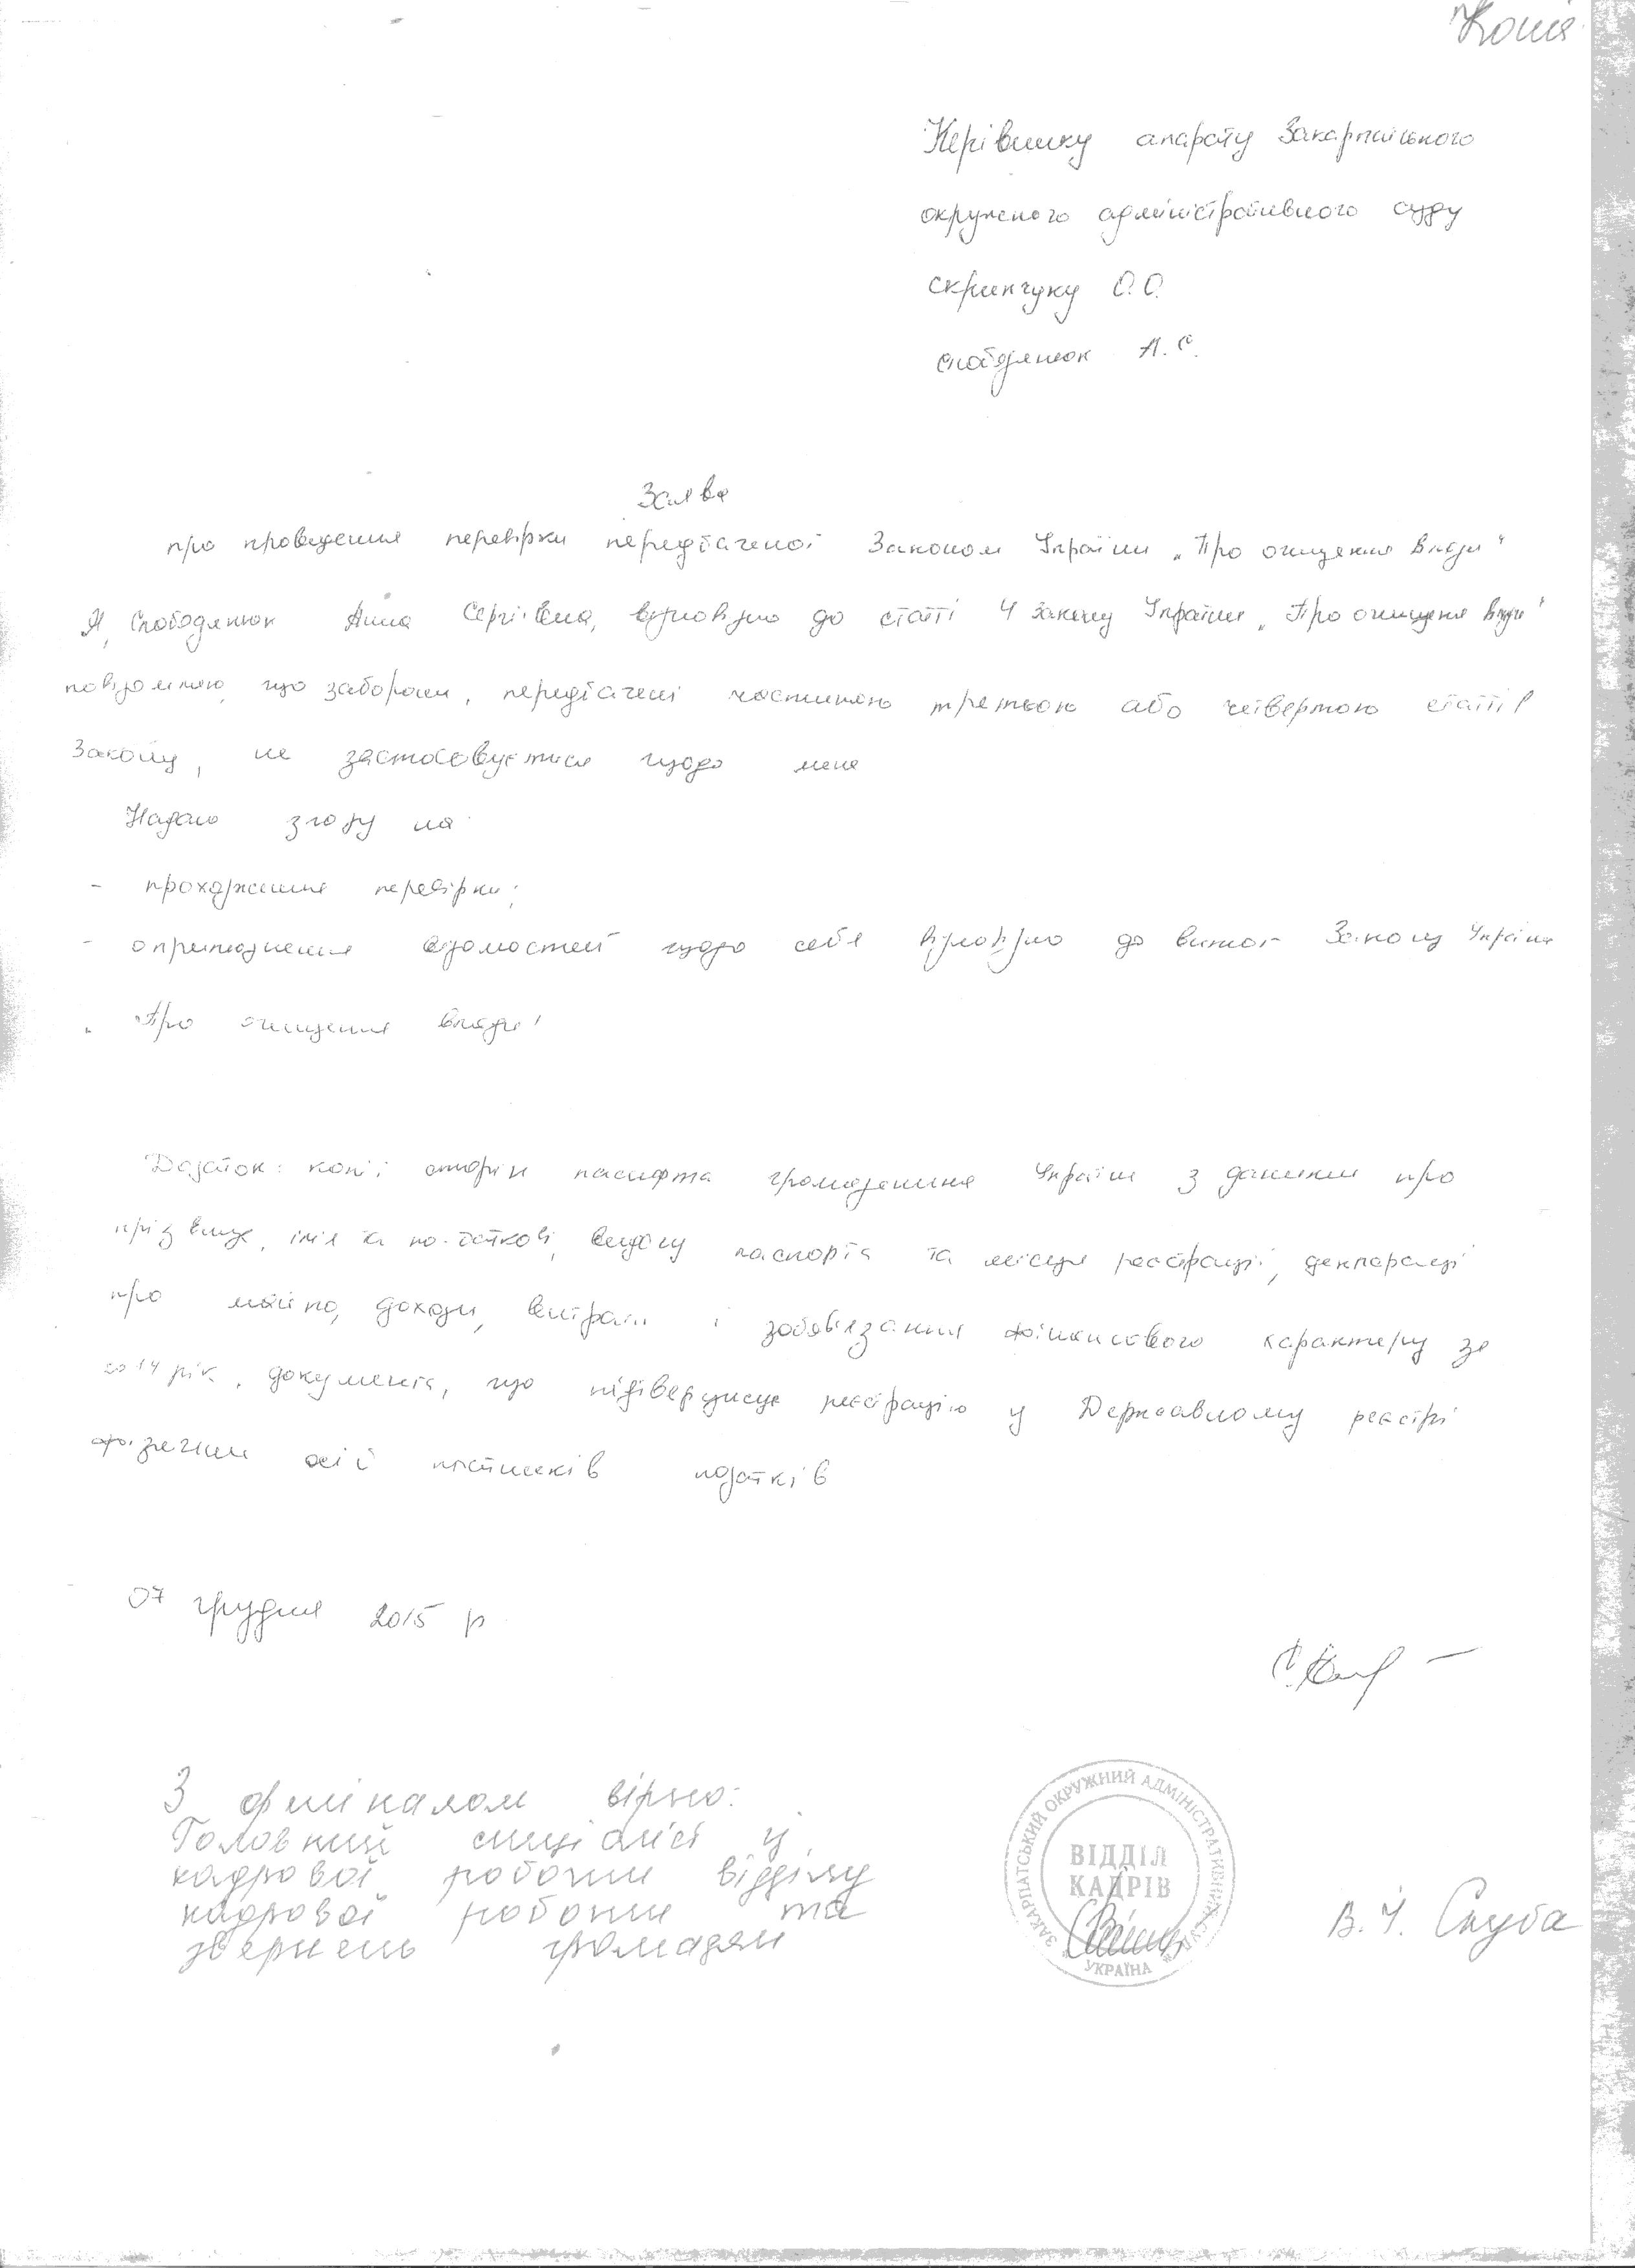 Копія
Керівнику апарату Закарпатського
окружного адміністративного суду
Скрипчуку О.О.
Слободянюк А.С.
Заява
про проведення перевірки передбаченої Законом України „Про очищення влади"
Я, Слободянюк Анна Сергіївна, відповідно до статті 4 Закону України „Про очищення влади"
повідомляю, що заборони, передбачені частиною третьою або четвертою статті 1
Закону, не застосовується щодо мене
Надаю згоду на:
- проходження перевірки;
- оприлюднення відомостей щодо себе відповідно до вимог Закону України
„Про очищення влади"
Додаток: копії сторін паспорта громадянина України з даними про
прізвище, ім'я та по-батькові, видачу паспорта та місце реєстрації, декларації
про майно, доходи, витрати і зобов'язання фінансового характеру за
2014 рік, документа, що підтверджує реєстрацію у Державному реєстрі
фізичних осіб платників податків
07 грудня 2015 р
З оригіналом вірно:
Головний спеціаліст з
кадрової роботи відділу
кадрової роботи та
звернень громадян
ЗАКАРПАТСЬКИЙ ОКРУЖНИЙ АДМІНІСТРАТИВНИЙ СУД * УКРАЇНА *
ВІДДІЛ
КАДРІВ
В.Й. Скуба